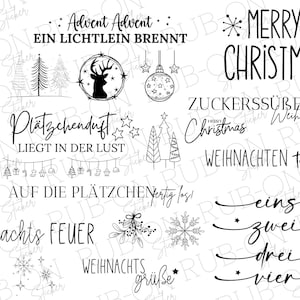 Advent Advent
EIN LICHTLEIN BRENNT
MERRY
CHRISTM
Plätzchenduft
LIEGT IN DER LUST
ZUCKERSSÜSSE
Weih
MERRY
Christmas
WEIHNACHTEN +
AUF DIE PLÄTZCHEN
fertig los!
achts FEUER
WEIHNACHTS
grüße
eins
zwei
drei
vier